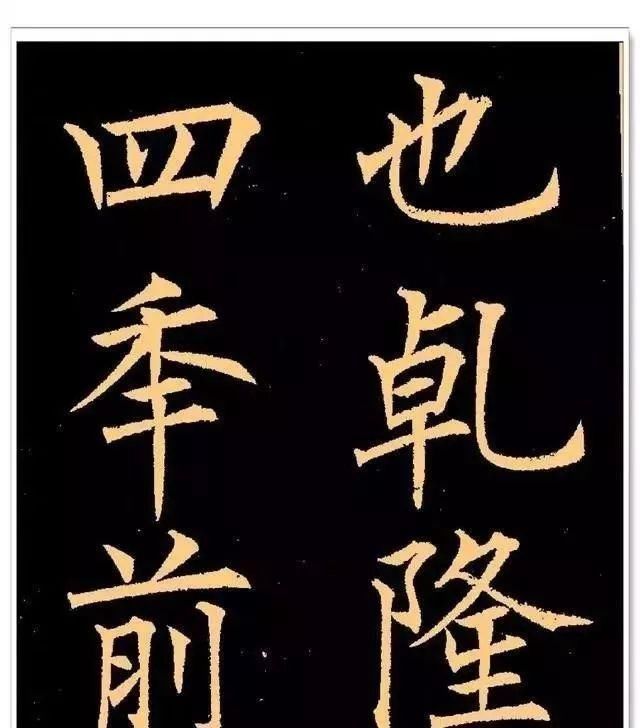 也乹隆
四秊前